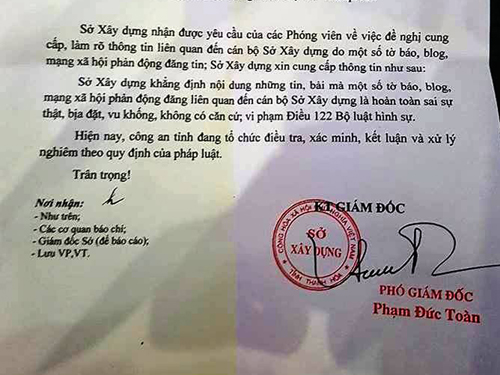 Sở Xây dựng nhận được yêu cầu của các Phóng viên về việc đề nghị cung
cấp, làm rõ thông tin liên quan đến cán bộ Sở Xây dựng do một số tờ báo, blog,
mạng xã hội phản động đăng tin; Sở Xây dựng xin cung cấp thông tin như sau:
Sở Xây dựng khẳng định nội dung những tin, bài mà một số tờ báo, blog,
mạng xã hội phản động đăng liên quan đến cán bộ Sở Xây dựng là hoàn toàn sai sự
thật, bịa đặt, vu khống, không có căn cứ; vi phạm Điều 122 Bộ luật hình sự.
Hiện nay, công an tỉnh đang tổ chức điều tra, xác minh, kết luận và xử lý
nghiêm theo quy định của pháp luật.
Trân trọng!
Nơi nhận:
- Như trên;
- Các cơ quan báo chí;
- Giám đốc Sở (để báo cáo);
- Lưu VP,VT.
KT.GIÁM ĐỐC
CỘNG HÒA XÃ HỘI CHỦ NGHĨA VIỆT NAM
SỞ
XÂY DỰNG
TỈNH THANH HÓA
PHÓ GIÁM ĐỐC
Phạm Đức Toàn